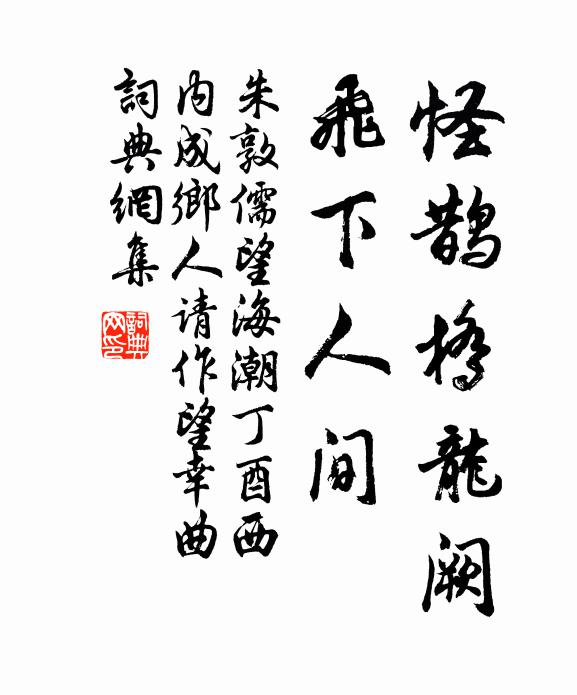 怪鵲橋龍闕
飛下人间
朱敦儒望海潮丁酉西
内成鄉人请作望幸曲
詞典網集
詞典
网印